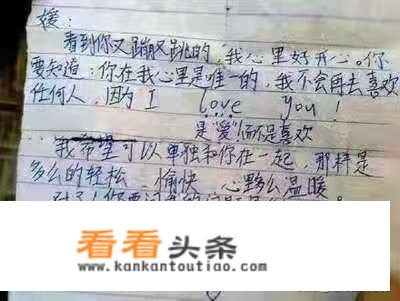 媛：
看到你又蹦又跳的，我心里好开心。你
要知道：你在我心里是唯一的，我不会再去喜欢
任何人，因为 I love you！
是"爱"而不是喜欢
我希望可以单独和你在一起，那样是
多么的轻松、愉快、心多么温暖
看看头条
www.kankantoutiao.com